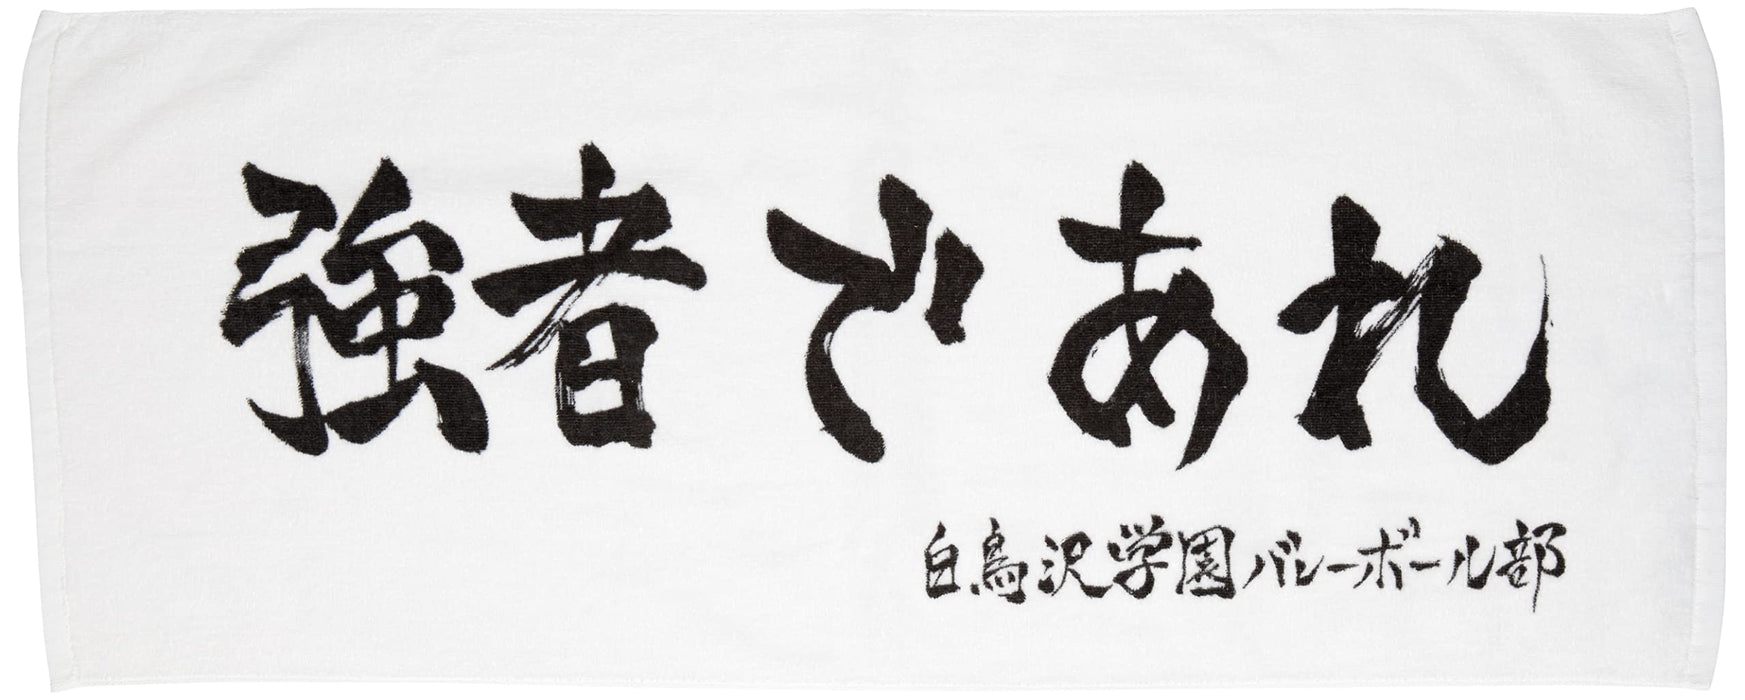 強者であれ
白鳥沢学園バレーボール部